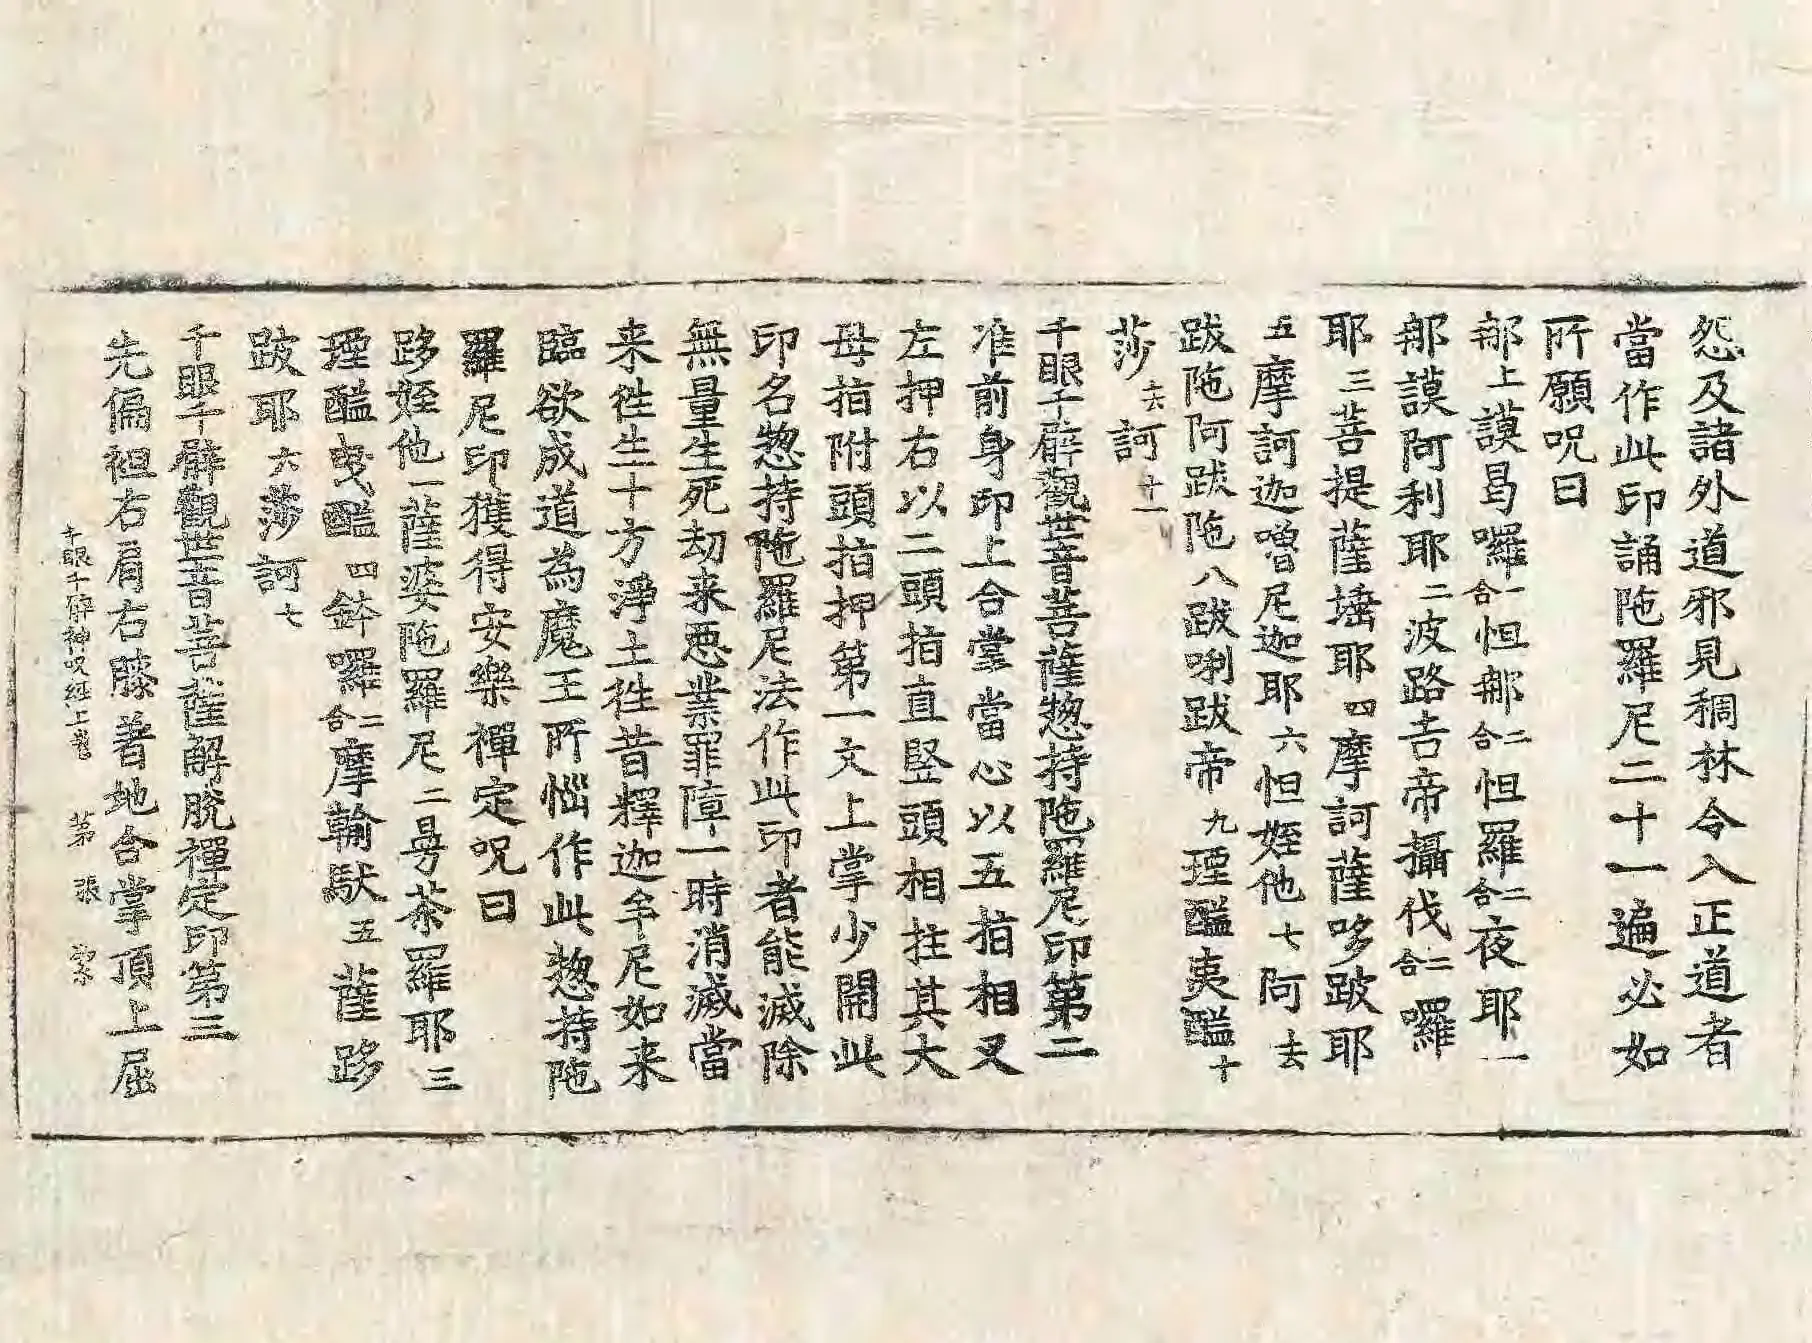 怨及諸外道邪見稠林令入正道者
當作此印誦陁羅尼二十一遍必如
所願呪曰
那上謨曷囉二合怛那二合怛羅二合夜耶一
那謨阿利耶二波路吉帝攝伐二合囉
耶三菩提薩埵耶四摩訶薩哆跛耶
五摩訶迦嚕尼迦耶六怛姪他七阿去
跋陁阿跋陁八跋唎跋帝九堙醯夷醯十
莎去訶十一
千眼千臂觀世音菩薩惣持陁羅尼印第二
准前身印上合掌當心以五指相叉
左押右以二頭指直竪頭相拄其大
母指附頭指押第一文上掌少開此
印名惣持陁羅尼法作此印者能滅除
無量生死劫来惡業罪障一時消滅當
来徃生十方淨土徃昔釋迦牟尼如来
臨欲成道為魔王所惱作此惣持陁
羅尼印獲得安樂禪定呪曰
跢姪他一薩婆陁羅尼二曼茶羅耶三
堙醯曳醯四鉢囉二合摩輸馱五薩跢
跛耶六莎訶七
千眼千臂觀世音菩薩解脫禪定印第三
先偏袒右肩右膝著地合掌頂上屈
千眼千臂神呪經上卷 第 張